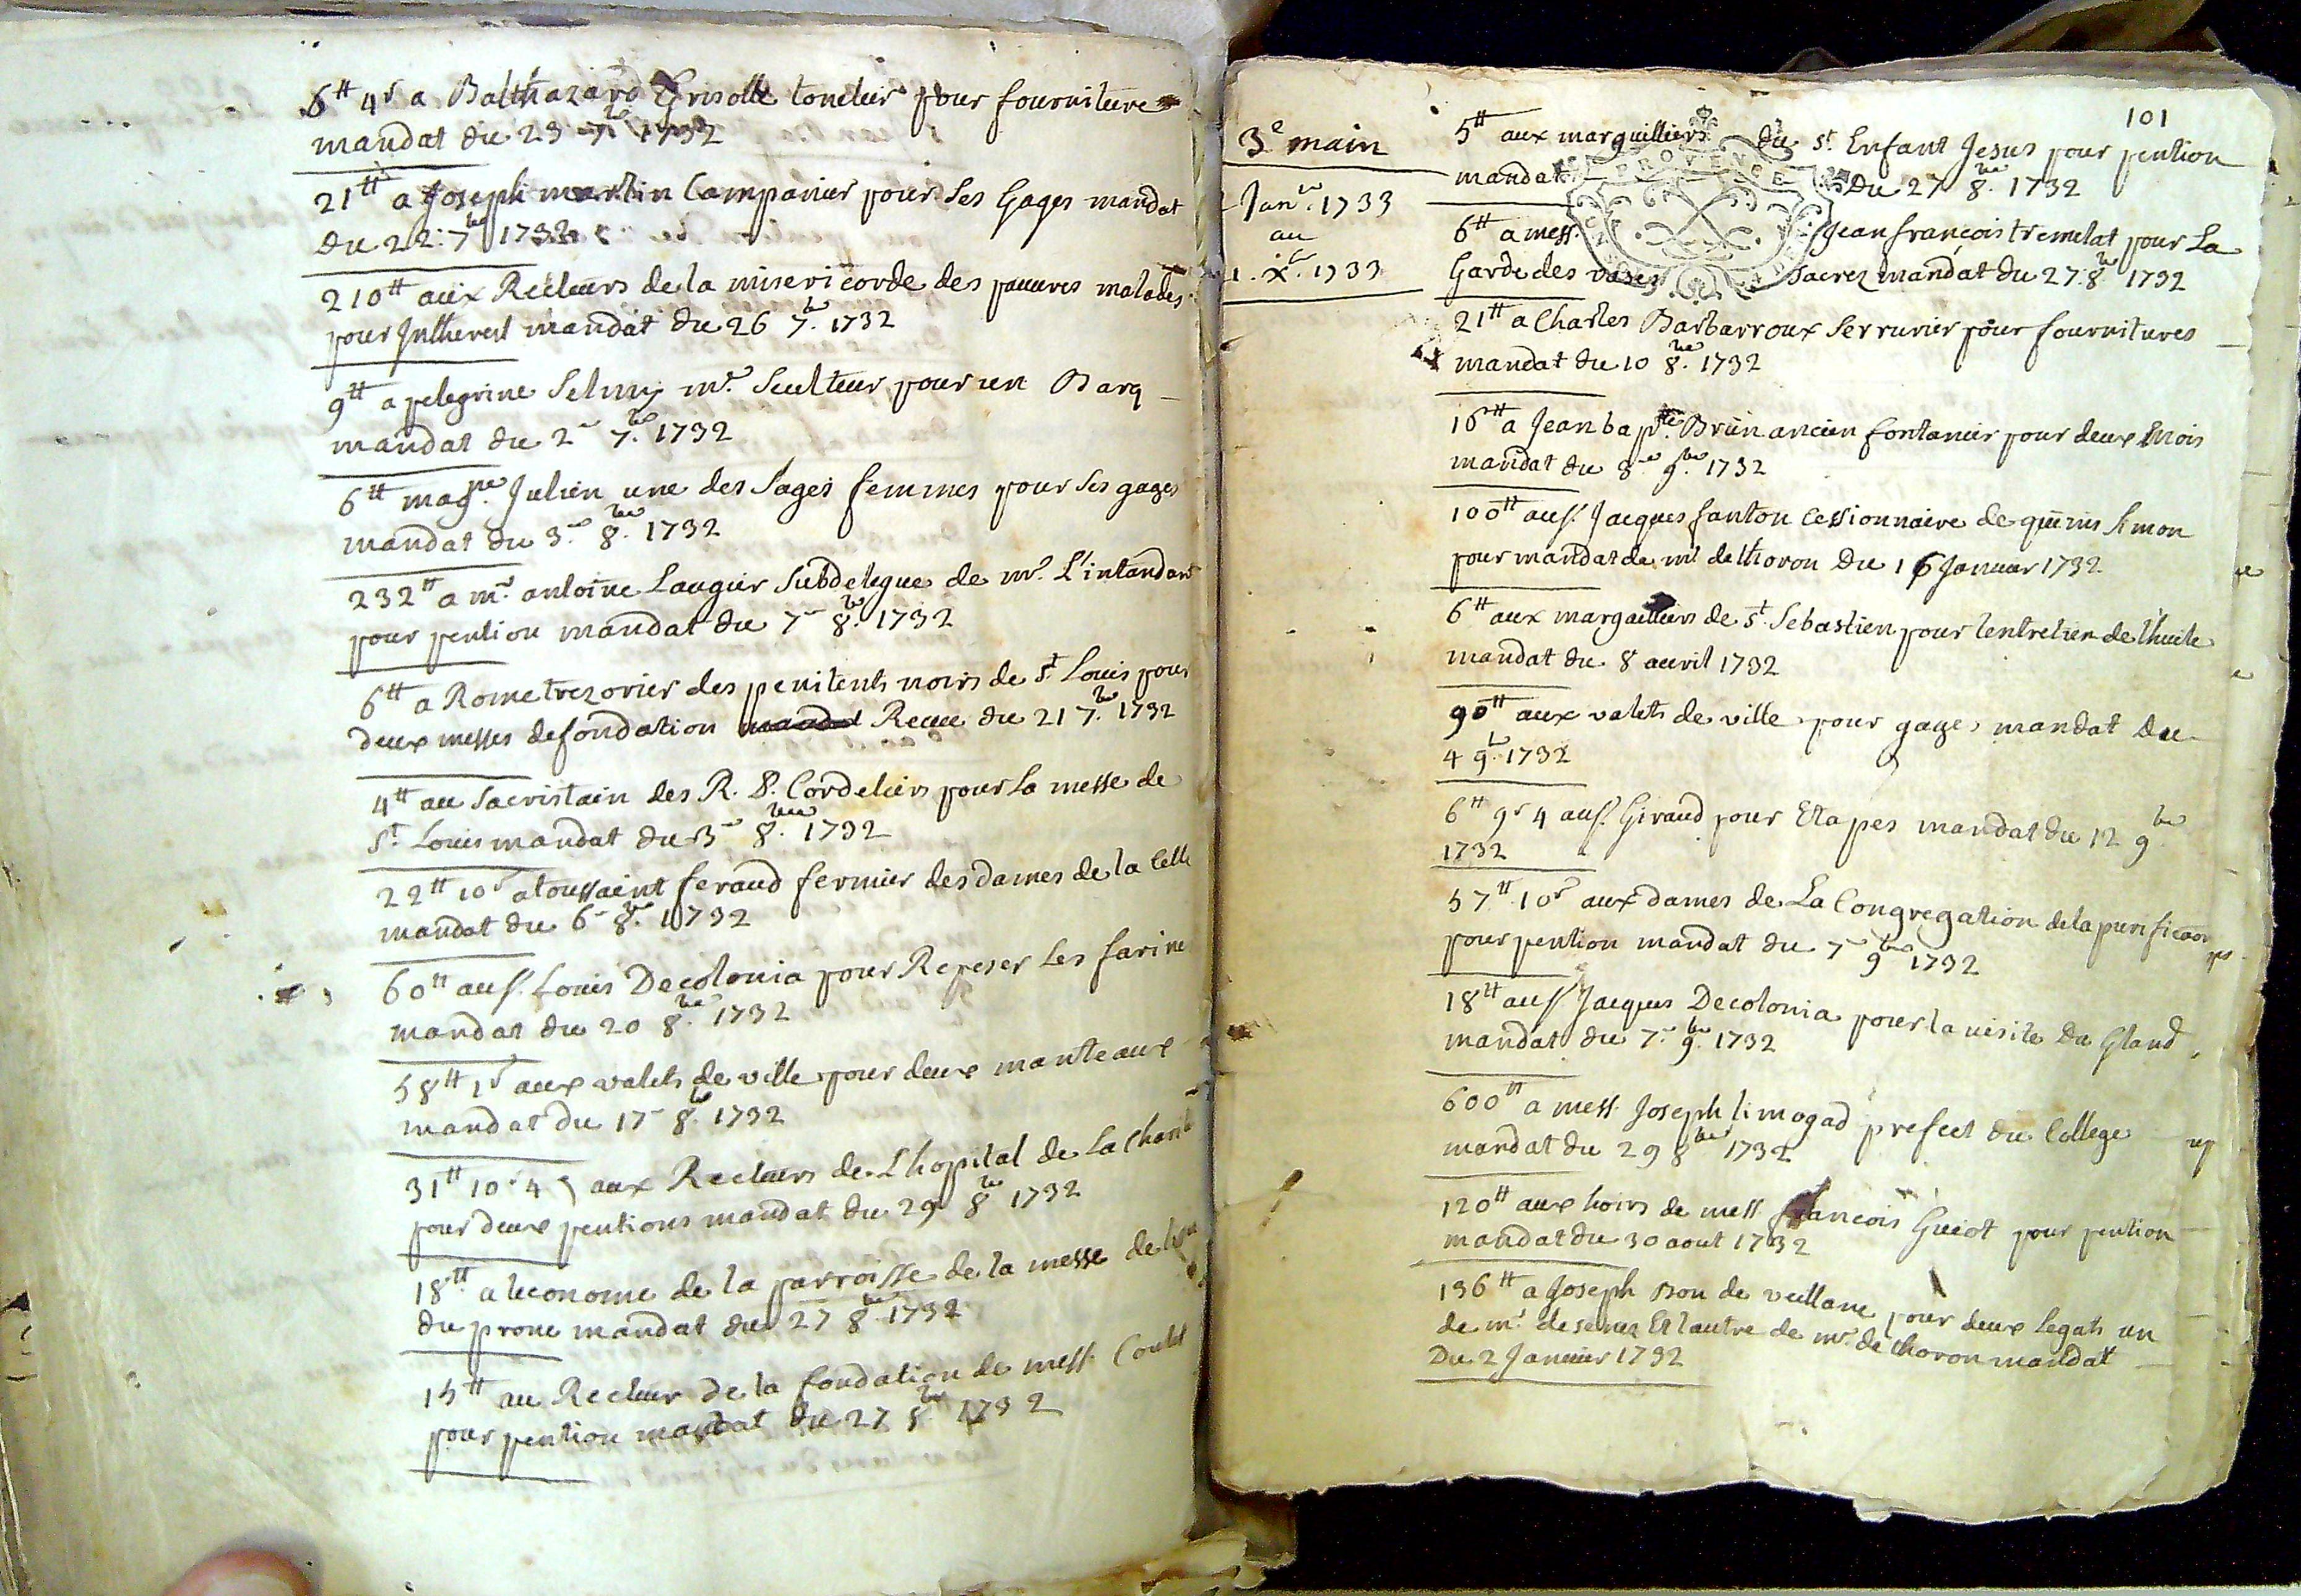 6tt 4s a Balthazard Grisolle tondeur pour fourniture
mandat du 23 7bre 1732
21tt a Joseph martin Campanier pour ses Gages mandat
du 22: 7bre 1732
210tt aux Recteurs de la misericorde des pauures malades
pour Inthevest mandat du 26 7bre. 1732
9tt a pelegrine Selmy mr. Sculteur pour un Barq
mandat du 2e 7bre. 1732
6tt magne. Julien une des Sages femmes pour ses gages
mandat du 3e 8bre. 1732
232tt a mr. antoine Laugier Subdelegue de mr. L'intandant
pour pention mandat du 7e 8bre. 1732
6tt a Rome trezorier des penitents noirs de St. Louis pour
deux messes de fondation Receu du 21 7bre. 1732
4tt au Sacristain des R. P. Cordeliers pour la messe de
St. Louis mandat du 3e 8bre. 1732
22tt 10s a toussaint feraud fermier des dames de la Celle
mandat du 6e 8bre. 1732
60tt au s. Louis Decolonia pour Repeser les farine
mandat du 20 8bre. 1732
58tt 1s aux valets de ville pour deux manteaux
mandat du 17e 8bre. 1732
31tt 10s 4 aux Recteurs de L'hopital de La charité
pour deux pentions mandat du 29 8bre 1732
18tt a leconome de la parroisse de la messe de
du prone mandat du 27 8bre 1732
15tt au Recteur de la fondation de mess.
pour pention mandat du 27 8bre 1732
101
3e main
Janer. 1733
au
1. Xbre. 1733
5tt aux marguilliers du St. Enfant Jesus pour pention
mandat du 27 8bre. 1732
PROVENCE
6tt a mess. Jean francois tremelat pour La
Garde des vases sacrez mandat du 27. 8bre 1732
21tt a Charles Barbarroux Serrurier pour fournitures
mandat du 10 8bre. 1732
16tt a Jean bapte. Brun ancien fontanier pour deux mois
mandat du 8e 9bre. 1732
100tt au s. Jacques fanton Cessionnaire de Simon
pour mandat de mr de thoron du 16 Januier 1732
6tt aux marguilliers de St. Sebastien pour lentretien de lhuile
mandat du 8 auril 1732
90tt aux valets de ville pour gages mandat du
4 9bre. 1732
6tt 9s 4 au s. Giraud pour Etapes mandat du 12 9bre
1732
57tt 10s aux dames de La Congregation de la purificaon
pour pention mandat du 7e 9bre 1732
18tt au s. Jacques Decolonia pour la visite du Gland
mandat du 7e. 9bre. 1732
600tt a mess. Joseph limogad prefect du College
mandat du 29 8bre 1732
120tt aux hoirs de mess. francois Guiot pour pention
mandat du 30 aout 1732
136tt a Joseph Bon de veillane pour deux legats un
de mr. de senez Et lautre de mr. de thoron mandat
Du 2 Januier 1732